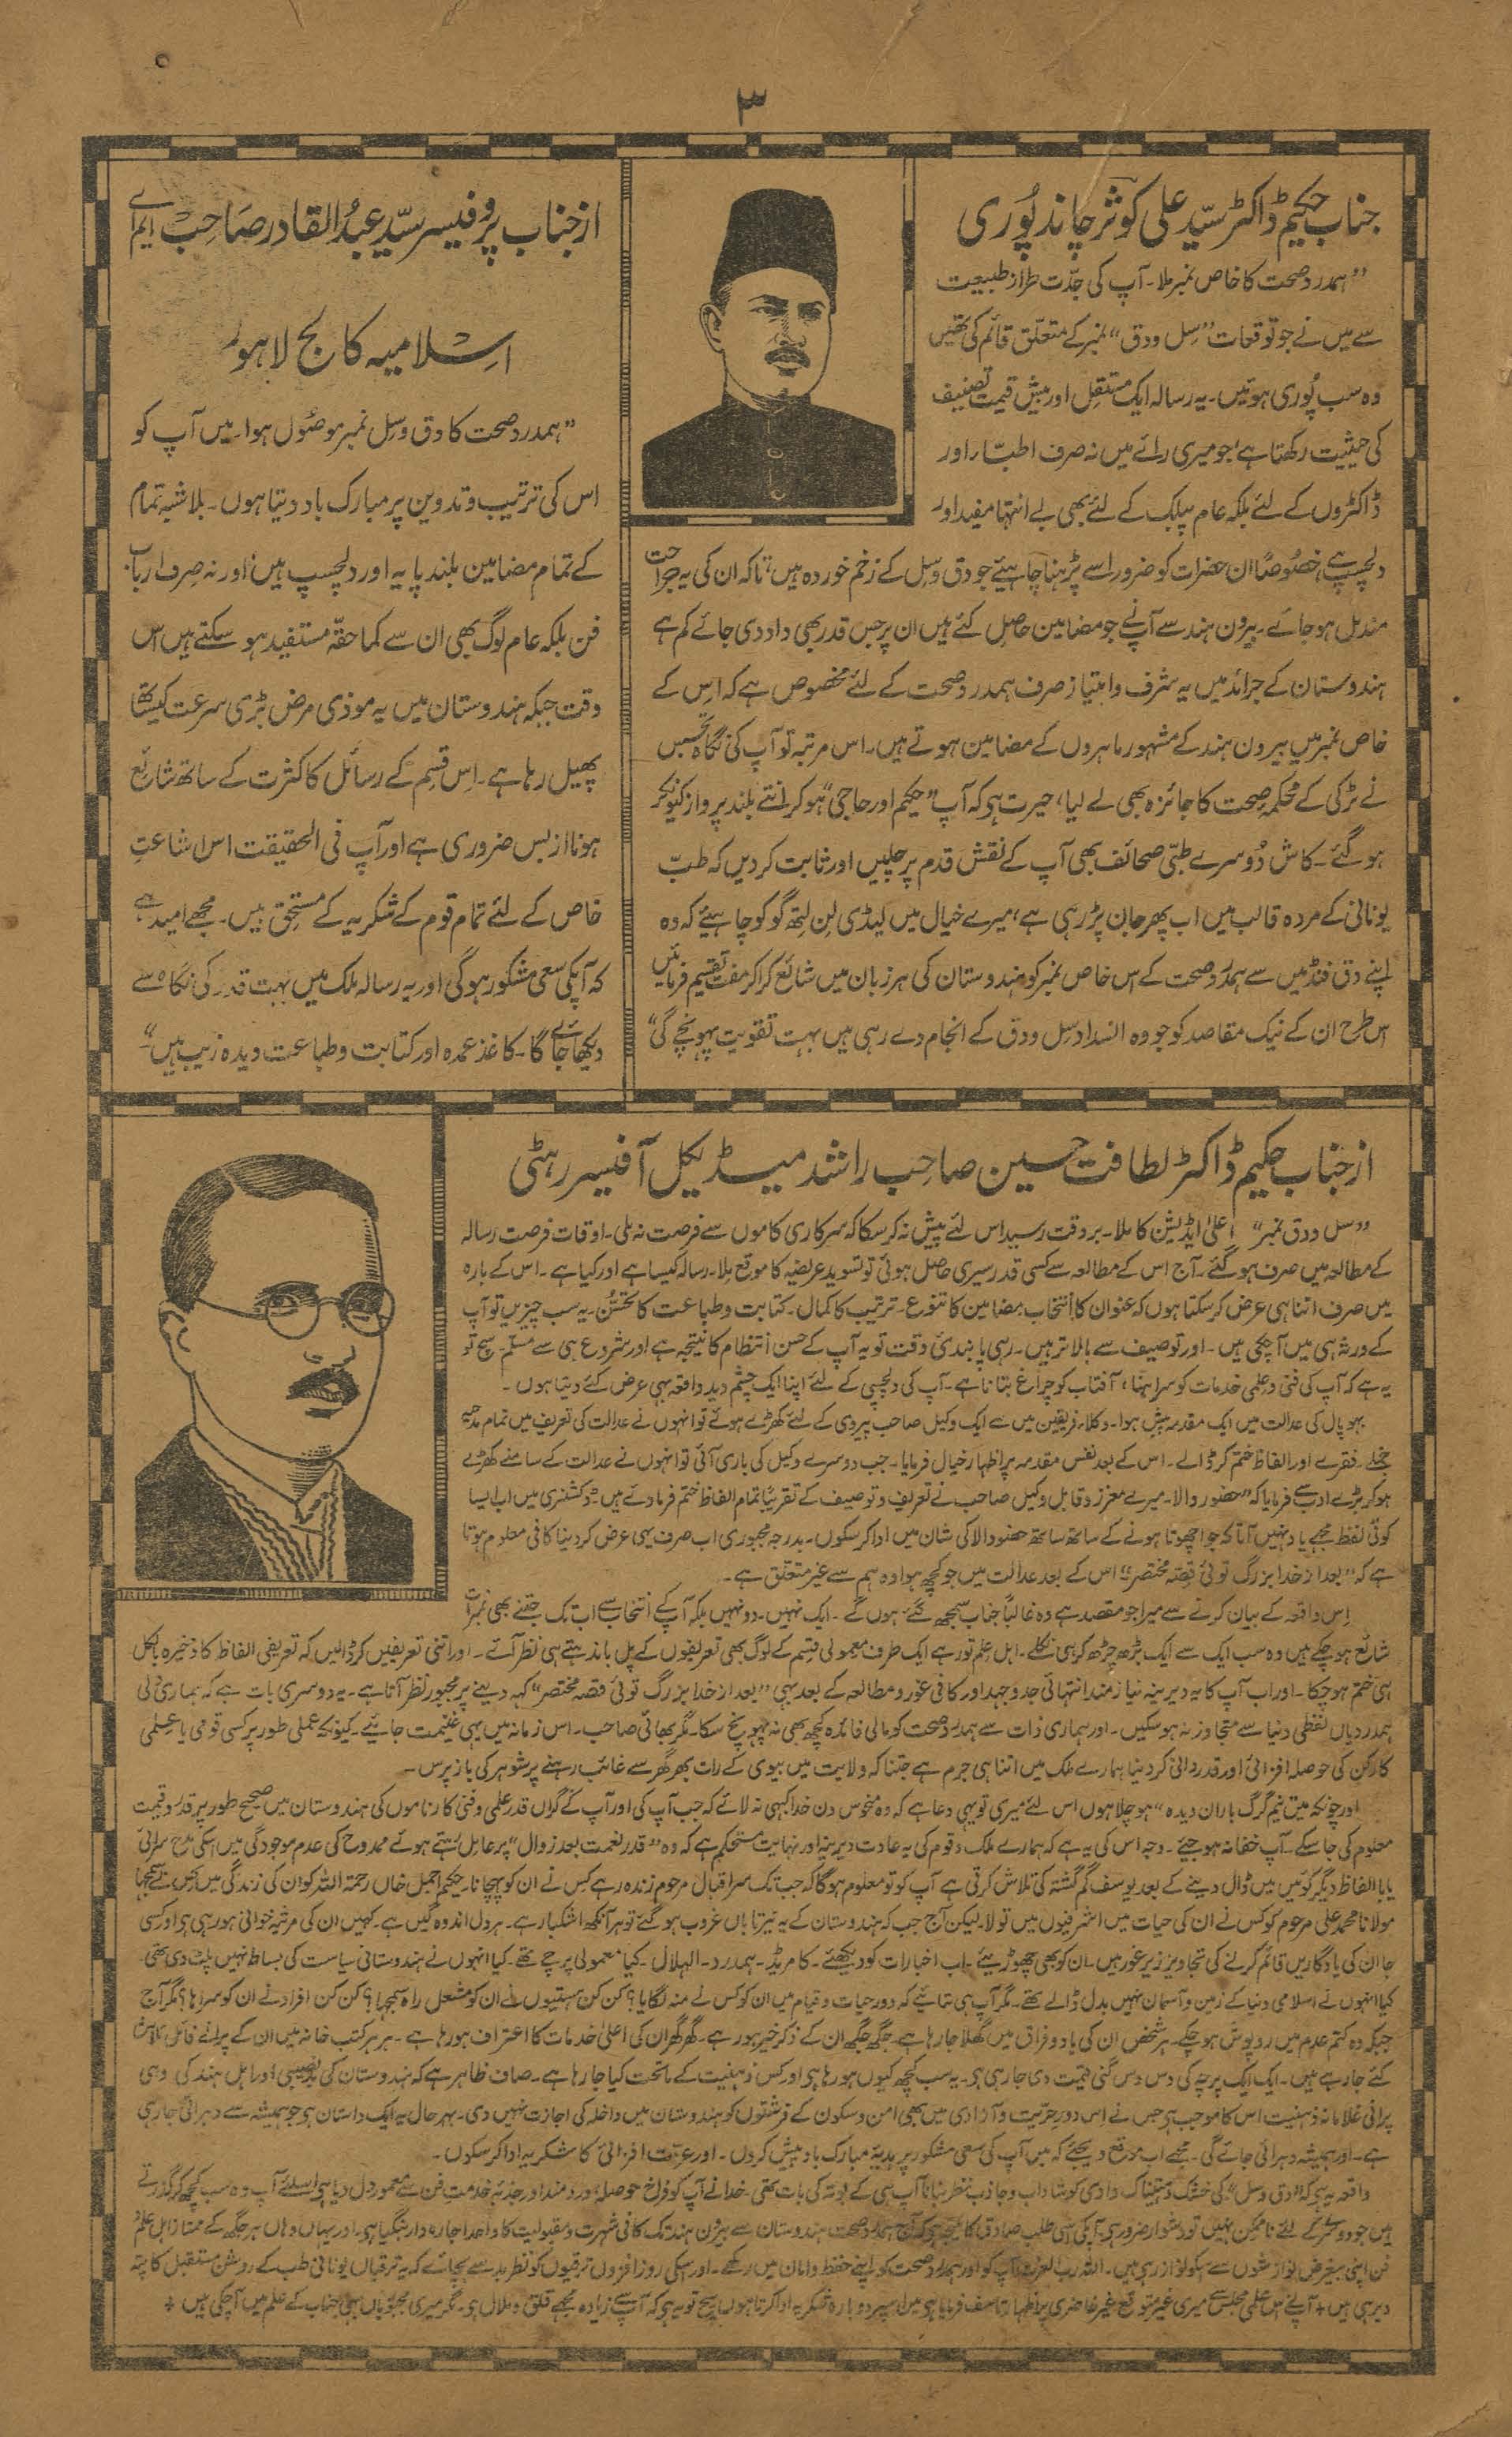 ۳
جناب حکیم ڈاکٹر سیّد علی کوثر چاند پُوری
”ہمدرد صحت کا خاص نمبر ملا۔ آپ کی جدّت طراز طبیعت
سے میں نے جو توقعات ”سِل و دق“ نمبر کے متعلّق قائم کی تھیں
وہ سب پُوری ہوئیں۔ یہ رسالہ ایک مستقل اور بیش قیمت تصنیف
کی حیثیت رکھتا ہے، جو میری رائے میں نہ صرف اطبّاء اور
ڈاکٹروں کے لئے بلکہ عام پبلک کے لئے بھی بے انتہا مفید اور
دلچسپ ہے، خصُوصًا ان حضرات کو ضرور اسے پڑہنا چاہیئے جو دق و سِل کے زخم خوردہ ہیں، تاکہ ان کی یہ جراحت
مندمل ہو جائے۔ بیرون ہند سے آپ نے جو مضامین حاصل کئے ہیں ان پر جس قدر بھی داد دی جائے کم ہے
ہندوستان کے جرائد میں یہ شرف و امتیاز صرف ہمدرد صحت کے لئے مخصوص ہے کہ اس کے
خاص نمبر میں بیرون ہند کے مشہور ماہروں کے مضامین ہوتے ہیں۔ اس مرتبہ تو آپ کی نگاہ تجسس
نے ٹرکی کے محکمہ صحت کا جائزہ بھی لے لیا، حیرت ہے کہ آپ ”حکیم اور حاجی“ ہو کر اتنے بلند پرواز کیونکر
ہو گئے۔ کاش دُوسرے طبّی صحائف بھی آپ کے نقش قدم پر چلیں اور ثابت کر دیں کہ طبّ
یونانی کے مردہ قالب میں اب پھر جان پڑ رہی ہے، میرے خیال میں لیڈی لِن لِتھ گو کو چاہیئے کہ وہ
اپنے دق فنڈ میں سے ہمدرد صحت کے اس خاص نمبر کو ہندوستان کی ہر زبان میں شائع کرا کر مفت تقسیم فرمائیں
اس طرح ان کے نیک مقاصد کو جو وہ انسداد سِل و دق کے انجام دے رہی ہیں بہت تقویت پہونچے گی“
از جناب پروفیسر سیّد عبدُ القادر صَاحِبْ ایم اے
اِسْلامیہ کالج لاہور
”ہمدرد صحت کا دق و سِل نمبر موصُول ہوا۔ میں آپ کو
اس کی ترتیب و تدوین پر مبارک باد دیتا ہوں۔ بلا شبہ تمام
کے تمام مضامین بلند پایہ اور دلچسپ ہیں اور نہ صرف ارباب
فن بلکہ عام لوگ بھی ان سے کماحقہٗ مستفید ہو سکتے ہیں اس
وقت جبکہ ہندوستان میں یہ موذی مرض بڑی سرعت کیساتھ
پھیل رہا ہے۔ اس قسم کے رسائل کا کثرت کے ساتھ شائع
ہونا ازبس ضروری ہے اور آپ فی الحقیقت اس اشاعتِ
خاص کے لئے تمام قوم کے شکریہ کے مستحق ہیں۔ مجھے امید ہے
کہ آپکی سعی مشکور ہوگی اور یہ رسالہ ملک میں بہت قدر کی نگاہ سے
دیکھا جائے گا۔ کاغذ عمدہ اور کتابت و طباعت دیدہ زیب ہیں“
از جناب حکیم ڈاکٹر لطافت حسین صاحب راشد میڈیکل آفیسر رہٹی
”سل و دق نمبر“ اعلیٰ ایڈیشن کا ملا۔ بروقت رسید اس لئے پیش نہ کر سکا کہ سرکاری کاموں سے فرصت نہ ملی۔ اوقات فرصت رسالہ
کے مطالعہ میں صرف ہو گئے۔ آج اس کے مطالعہ سے کسی قدر سیری حاصل ہوئی تو تسوید عریضہ کا موقع ملا۔ رسالہ کیسا ہے اور کیا ہے۔ اس کے بارہ
میں صرف اتنا ہی عرض کر سکتا ہوں کہ عنوان کا انتخاب مضامین کا تنوع۔ ترتیب کا کمال۔ کتابت و طباعت کا تحسّن۔ یہ سب چیزیں تو آپ
کے ورثہ ہی میں آچکی ہیں۔ اور توصیف سے بالاتر ہیں۔ رہی پابندیٔ وقت تو یہ آپ کے حسن انتظام کا نتیجہ ہے اور شروع ہی سے مسلّم۔ سچ تو
یہ ہے کہ آپ کی فنی و علمی خدمات کو سراہنا، آفتاب کو چراغ بتانا ہے۔ آپ کی دلچسپی کے لئے اپنا ایک چشم دید واقعہ بھی عرض کئے دیتا ہوں۔
بھوپال کی عدالت میں ایک مقدمہ پیش ہوا۔ وکلاء فریقین میں سے ایک وکیل صاحب پیروی کے لئے کھڑے ہوئے تو انہوں نے عدالت کی تعریف میں تمام مدحیہ
جملے۔ فقرے اور الفاظ ختم کر ڈالے۔ اس کے بعد نفس مقدمہ پر اظہار خیال فرمایا۔ جب دوسرے وکیل کی باری آئی تو انہوں نے عدالت کے سامنے کھڑے
ہو کر بڑے ادب سے فرمایا کہ ”حضور والا۔ میرے معزز و قابل وکیل صاحب نے تعریف و توصیف کے تقریباً تمام الفاظ ختم فرما دئے ہیں۔ ڈکشنری میں اب ایسا
کوئی لفظ مجھے یاد نہیں آتا کہ جو اچھوتا ہونے کے ساتھ ساتھ حضور والا کی شان میں ادا کر سکوں۔ بدرجہ مجبوری اب صرف یہی عرض کر دینا کافی معلوم ہوتا
ہے کہ ”بعد از خدا بزرگ توئی قصّہ مختصر“ اس کے بعد عدالت میں جو کچھ ہوا وہ ہم سے غیر متعلق ہے۔
اِس واقعہ کے بیان کرنے سے میرا جو مقصد ہے وہ غالباً جناب سمجھ گئے ہوں گے۔ ایک نہیں۔ دو نہیں بلکہ آپ کے انتخاب سے اب تک جتنے بھی نمبرات
شائع ہو چکے ہیں وہ سب ایک سے ایک بڑھ چڑھ کر ہی نکلے۔ اہل علم تو رہے ایک طرف معمولی قسم کے لوگ بھی تعریفوں کے پل باندہتے ہی نظر آئے۔ اور اتنی تعریفیں کر ڈالیں کہ تعریفی الفاظ کا ذخیرہ بالکل
ہی ختم ہو چکا۔ اور اب آپ کا یہ دیرینہ نیازمند انتہائی جدوجہد اور کافی غور و مطالعہ کے بعد یہی ”بعد از خدا بزرگ توئی قصہ مختصر“ کہہ دینے پر مجبور نظر آتا ہے۔ یہ دوسری بات ہے کہ ہماری دلی
ہمدردیاں لفظی دنیا سے متجاوز نہ ہو سکیں۔ اور ہماری ذات سے ہمدرد صحت کو مالی فائدہ کچھ بھی نہ پہونچ سکا۔ مگر بھائی صاحب۔ اس زمانہ میں یہی غنیمت جانیئے۔ کیونکہ عملی طور پر کسی قومی یا علمی
کارکن کی حوصلہ افزائی اور قدردانی کر دینا ہمارے ملک میں اتنا ہی جرم ہے جتنا کہ ولایت میں بیوی کے رات بھر گھر سے غائب رہنے پر شوہر کی باز پرس۔
اور چونکہ میں نیم گرگ باران دیدہ“ ہو چلا ہوں اس لئے میری تو یہی دعا ہے کہ وہ منحوس دن خدا کبھی نہ لائے کہ جب آپ کی اور آپ کے گراں قدر علمی و فنی کارناموں کی ہندوستان میں صحیح طور پر قدر و قیمت
معلوم کی جا سکے۔ آپ خفا نہ ہو جیئے۔ وجہ اس کی یہ ہے کہ ہمارے ملک و قوم کی یہ عادت دیرینہ اور نہایت مستحکم ہے کہ وہ ”قدر نعمت بعد زوال“ پر عامل رہتے ہوئے ممدوح کی عدم موجودگی میں اسکی مدح سرائی
یا بالفاظ دیگر کوئیں میں ڈال دینے کے بعد یوسف گم گشتہ کی تلاش کرتی ہے آپ کو تو معلوم ہوگا کہ جب تک سر اقبال مرحوم زندہ رہے کس نے ان کو پہچانا۔ حکیم اجمل خاں رحمۃ اللہ کو ان کی زندگی میں کس نے سمجھا
مولانا محمد علی مرحوم کو کس نے ان کی حیات میں اشرفیوں میں تولا۔ لیکن آج جب کہ ہندوستان کے یہ نیّر تاباں غروب ہو گئے تو ہر آنکھ اشکبار ہے۔ ہر دل اندوہگیں ہے۔ کہیں ان کی مرثیہ خوانی ہو رہی ہے اور کسی
جا ان کی یادگاریں قائم کرنے کی تجاویز زیر غور ہیں۔ ان کو بھی چھوڑیئے۔ اب اخبارات کو دیکھئے۔ کامریڈ۔ ہمدرد۔ الہلال۔ کیا معمولی پرچے تھے۔ کیا انہوں نے ہندوستانی سیاست کی بساط نہیں پلٹ دی تھی۔
کیا انہوں نے اسلامی دنیا کے زمین و آسمان نہیں بدل ڈالے تھے۔ مگر آپ ہی بتائیے کہ دور حیات و قیام میں ان کو کس نے منہ لگایا؟ کن کن ہستیوں نے ان کو مشعل راہ سمجھا؟ کن کن افراد نے ان کو سراہا؟ مگر آج
جبکہ وہ کتم عدم میں روپوش ہو چکے۔ ہر شخص ان کی یاد و فراق میں گھلا جا رہا ہے۔ جگہ جگہ ان کے ذکر خیر ہو رہے۔ گھر گھر ان کی اعلیٰ خدمات کا اعتراف ہو رہا ہے۔ ہر ہر کتب خانہ میں ان کے پرانے فائل تلاش
کئے جا رہے ہیں۔ ایک ایک پرچے کی دس دس گنی قیمت دی جا رہی ہے۔ یہ سب کچھ کیوں ہو رہا ہے اور کس ذہنیت کے ماتحت کیا جا رہا ہے۔ صاف ظاہر ہے کہ ہندوستان کی بدنصیبی اور اہل ہند کی وہی
پرانی غلامانہ ذہنیت اس کا موجب ہے جس نے اس دور حرّیت و آزادی میں بھی امن و سکون کے فرشتوں کو ہندوستان میں داخلہ کی اجازت نہیں دی۔ بہر حال یہ ایک داستان ہے جو ہمیشہ سے دہرائی جا رہی
ہے۔ اور ہمیشہ دہرائی جائے گی۔ مجھے اب موقع دیجئے کہ میں آپ کی سعی مشکور پر ہدیۂ مبارک باد پیش کروں۔ اور عزّت افزائی کا شکریہ ادا کر سکوں۔
واقعہ یہ ہے کہ ”دق و سل“ کی خشک و ہیبتناک وادی کو شاداب و جاذب نظر بنانا آپ ہی کے بوتہ کی بات تھی۔ خدا نے آپ کو فراخ حوصلہ، دردمند اور جذبۂ خدمت فن سے معمور دل دیا ہے اسلئے آپ وہ سب کچھ کر گذرتے
ہیں جو دوسروں کے لئے ناممکن نہیں تو دشوار ضرور ہے۔ آپکی ہی طلب صادق کا نتیجہ ہے کہ آج ہمدرد صحت ہندوستان سے بیرون ہند تک کافی شہرت و مقبولیت کا واحد اجارہ دار بنگیا ہے۔ اور یہاں وہاں ہر جگہ کے ممتاز اہل علم و
فن اپنی بیغرض نوازشوں سے اسکو نواز رہے ہیں۔ اللہ رب العزت آپ کو اور ہمدرد صحت کو اپنے حفظ و امان میں رکھے۔ اور اسکی روز افزوں ترقیوں کو نظر بد سے بچائے کہ یہ ترقیاں یونانی طب کے روشن مستقبل کا پتہ
دیرہی ہیں + آپنے اس علمی مجلس سے میری غیر متوقع غیر حاضری پر اظہار تاسف فرمایا ہے میں اسپر دوبارہ شکریہ ادا کرتا ہوں سچ تو یہ ہے کہ آپ سے زیادہ مجھے قلق و ملال ہے۔ مگر میری مجبوریاں بھی جناب کے علم میں آچکی ہیں +